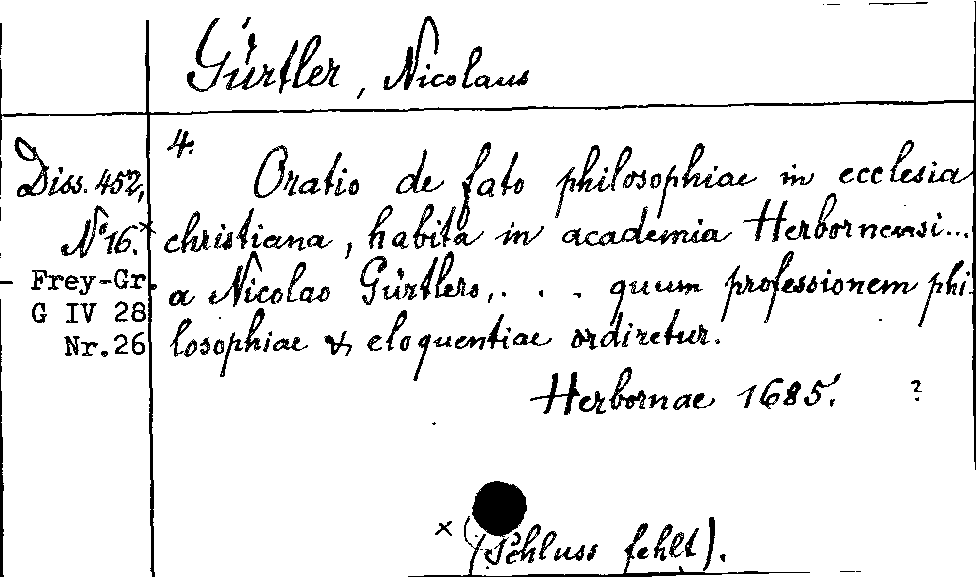 Gürtler, Nicolaus
Diss. 452,
No 16.x
- Frey-Gr.
G IV 28
Nr.26
4.
Oratio de fato philosophiae in ecclesia
christiana, habita in academia Herbornensi...
a Nicolao Gürtlero, . . . quum professionem phi-
losophiae & eloquentiae ordiretur.
Herbornae 1685. ?
x (Schluss fehlt).